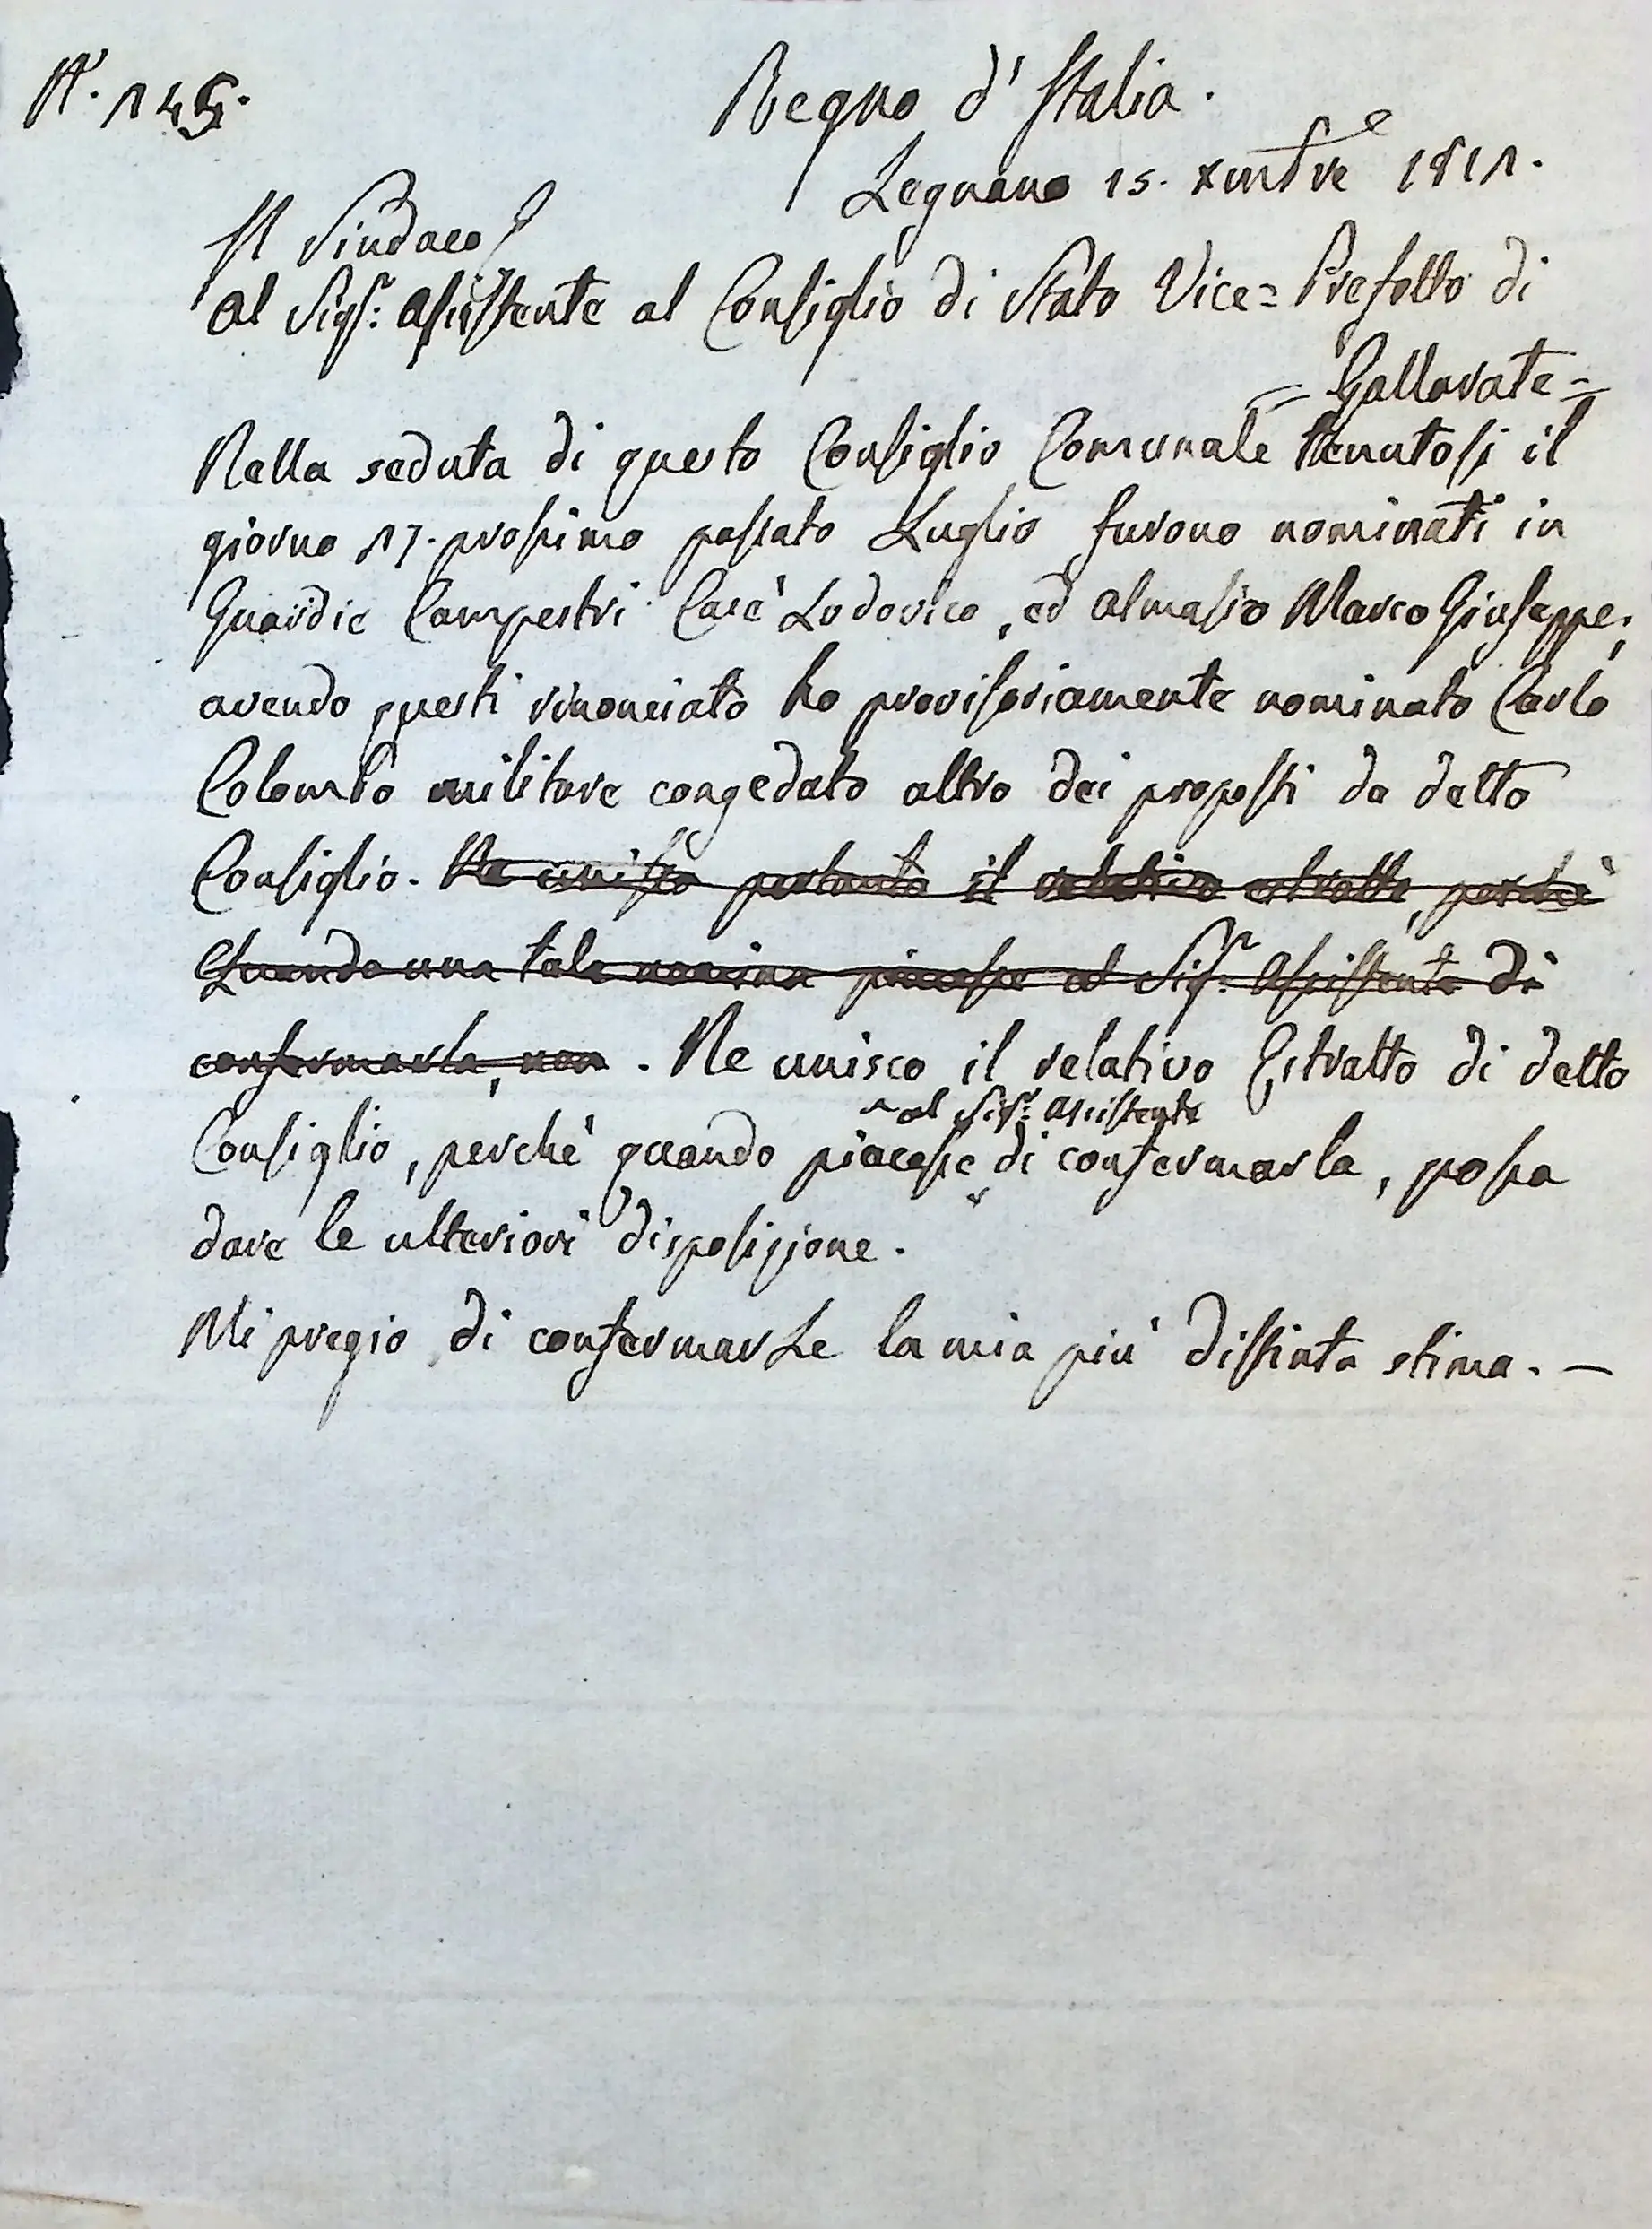 N.° 145.
Regno d'Italia.
Legnano 15. xmbre 1811.
Il Sindaco
Al Sigr. Assistente al Consiglio di Stato Vice=Prefetto di
= Gallarate =
Nella seduta di questo Consiglio Comunale tenutosi il
giorno 17. prossimo passato Luglio furono nominati in
Guardie Campestri Carè Lodovico, ed Almasio Marco Giuseppe;
avendo questi rinonciato ho provisoriamente nominato Carlo
Colombo militare congedato altro dei proposti da detto
Consiglio. Ne unisco pertanto il relativo estratto, perchè
quando una tale nomina piacesse al Sigr. Assistente di
confermarla, non. Ne unisco il relativo Estratto di detto
al Sigr. Assistente
Consiglio, perchè quando piacesse di confermarla, possa
dare le ulteriori disposizione.
Mi pregio di confermarLe la mia più distinta stima. —